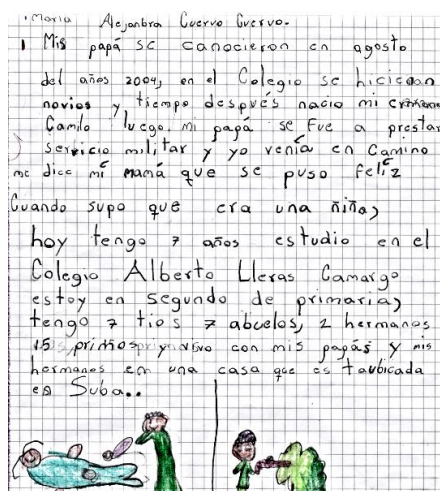 Maria Alejanbra Cuervo Cuervo.
Mis papá se canocieron en agosto
del años 2004, en el Colegio se hicieron
novios y tiempo después nacio mi
Camilo luego. mi papá se fue a prestar
servicio militar y yo venía en camino
me dice mí mamá que se puso felíz
Cuando supo que era una niña,
hoy tengo 7 años estudio en el
Colegio Alberto Lleras Camargo
estoy en segundo de primaria,
tengo 7 tios 7 abuelos, 2 hermanos
15 primos y vivo con mis papás y mis
hermanos em una casa que es
en Suba..